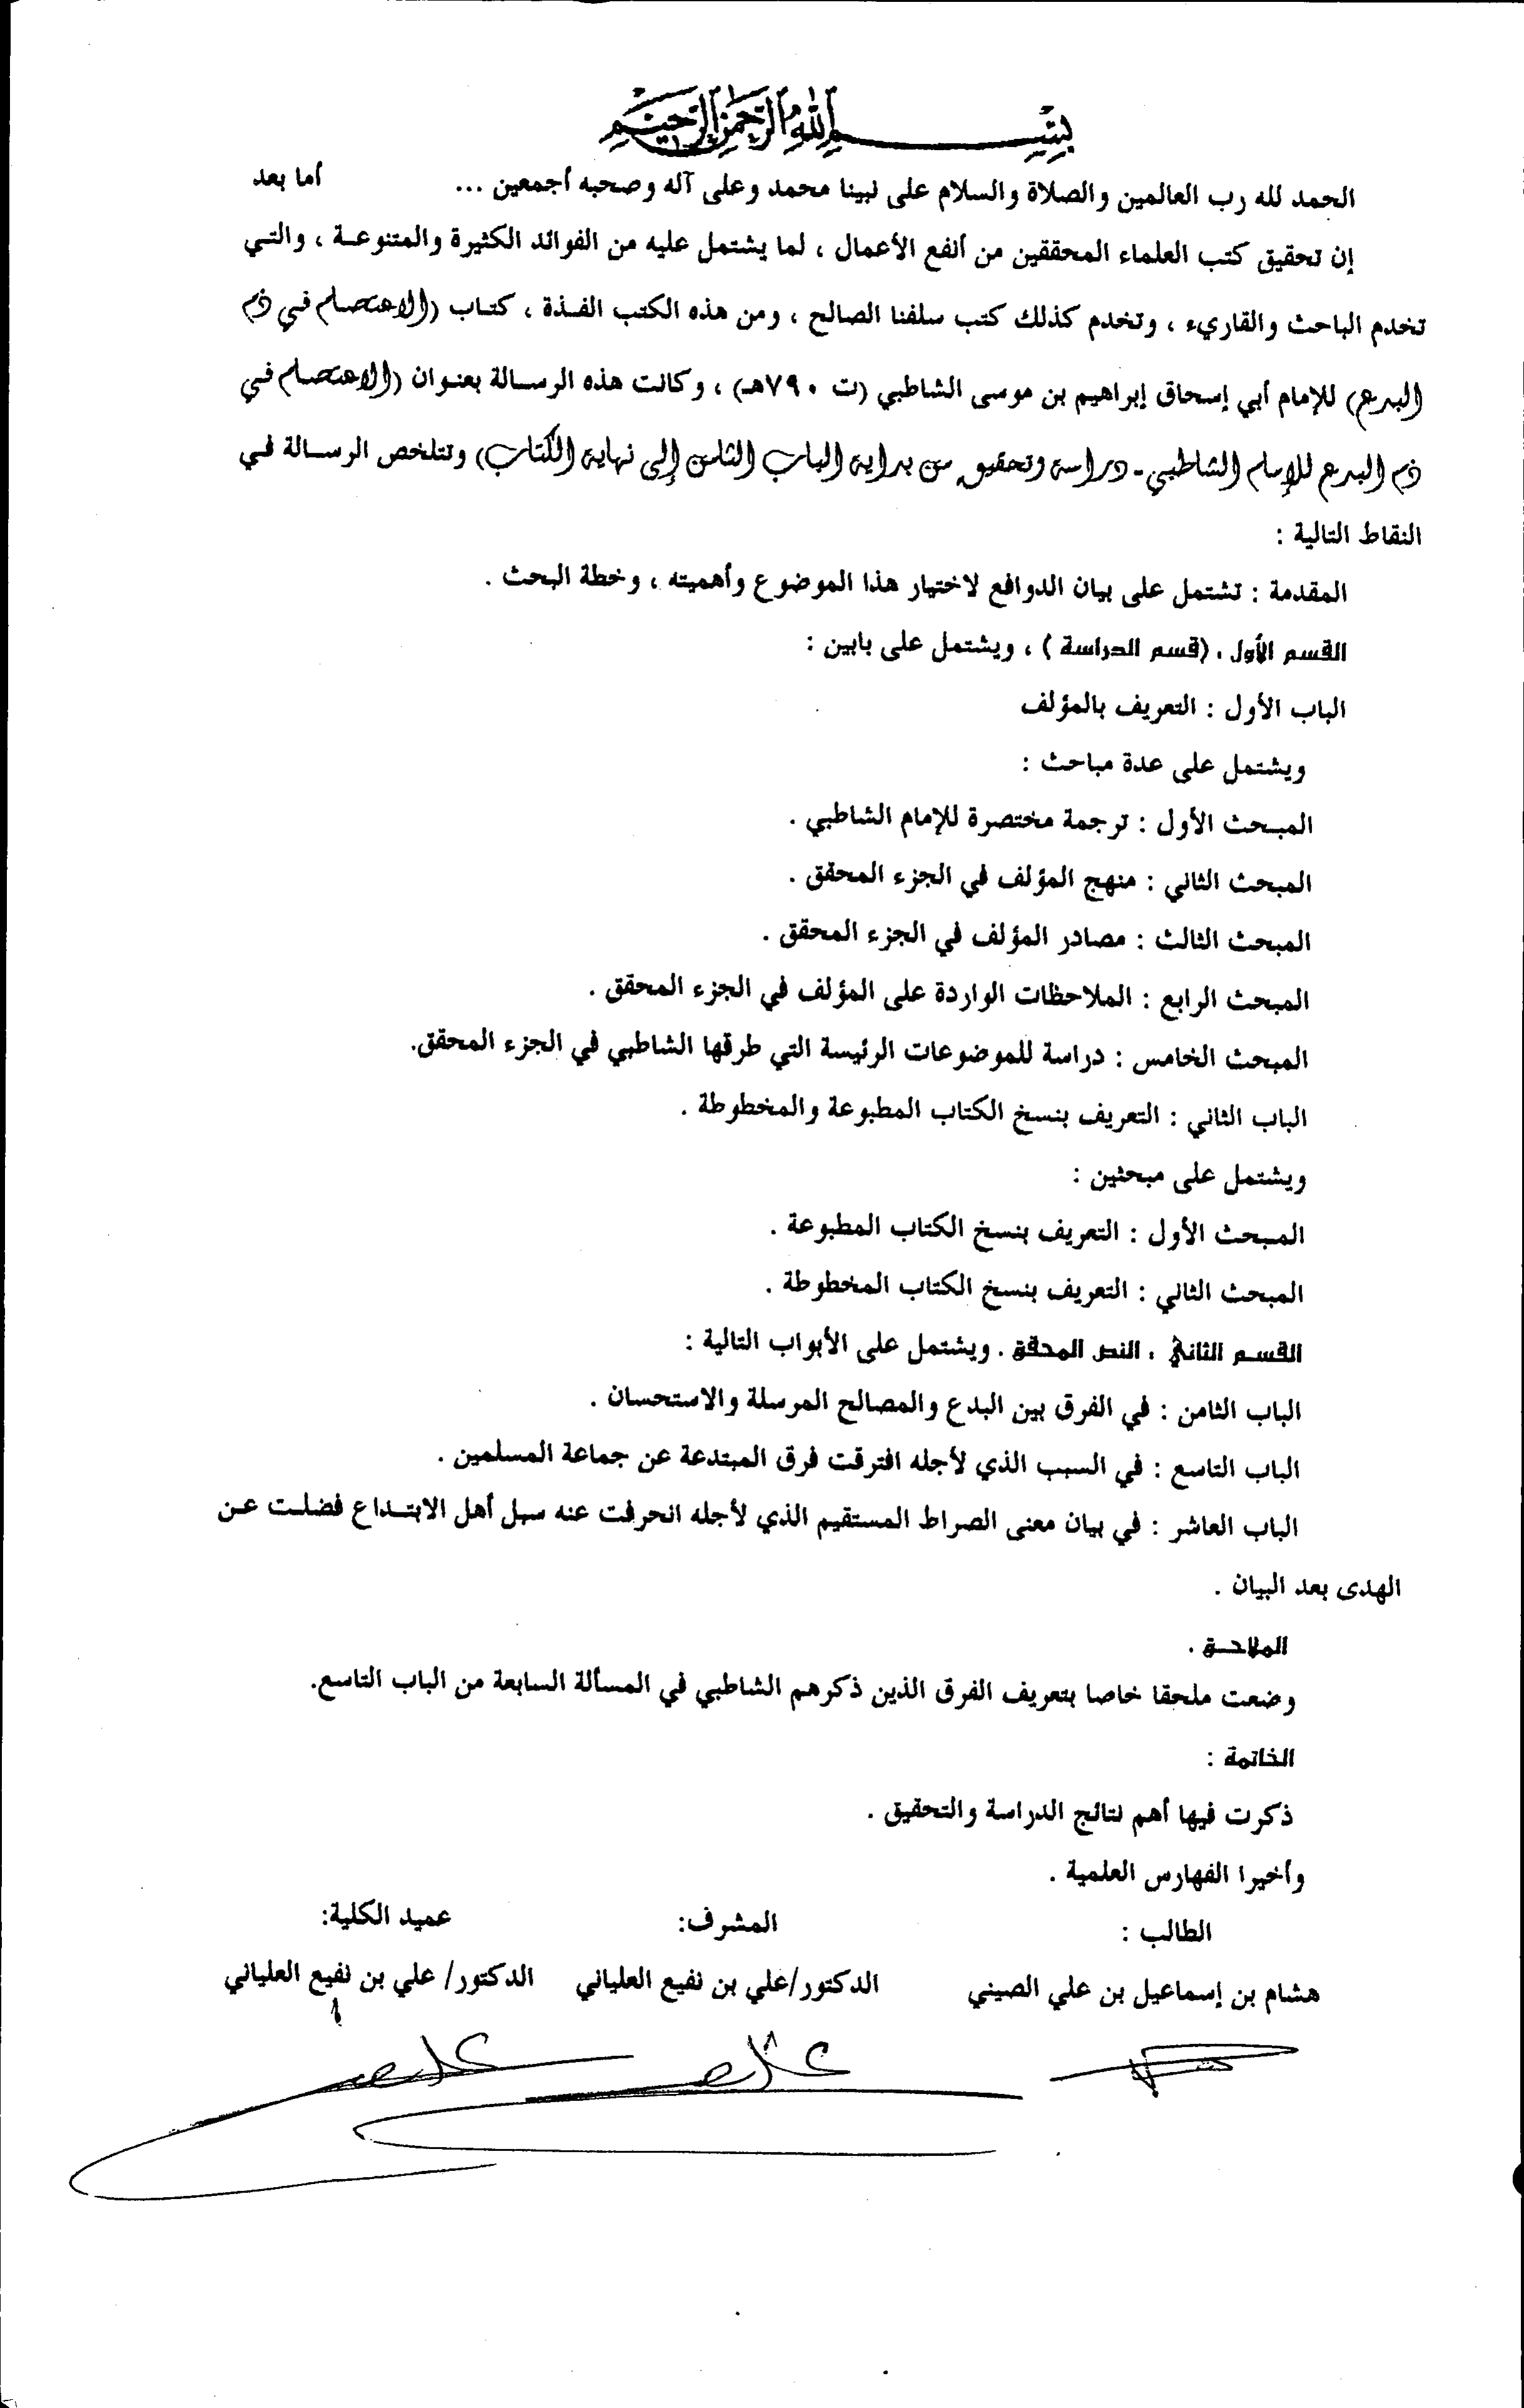 بسم الله الرحمن الرحيم
الحمد لله رب العالمين والصلاة والسلام على نبينا محمد وعلى آله وصحبه أجمعين ... أما بعد
إن تحقيق كتب العلماء المحققين من أنفع الأعمال ، لما يشتمل عليه من الفوائد الكثيرة والمتنوعة ، والتي
تخدم الباحث والقاريء ، وتخدم كذلك كتب سلفنا الصالح ، ومن هذه الكتب الفذة ، كتاب (الاعتصام في ذم
البدع) للإمام أبي إسحاق إبراهيم بن موسى الشاطبي (ت ٧٩٠هـ) ، وكانت هذه الرسالة بعنوان (الاعتصام في
ذم البدع للإمام الشاطبي - دراسة وتحقيق من بداية الباب الثامن إلى نهاية الكتاب) وتتلخص الرسالة في
النقاط التالية :
المقدمة : تشتمل على بيان الدوافع لاختيار هذا الموضوع وأهميته ، وخطة البحث .
القسم الأول . (قسم الدراسة ) ، ويشتمل على بابين :
الباب الأول : التعريف بالمؤلف
ويشتمل على عدة مباحث :
المبحث الأول : ترجمة مختصرة للإمام الشاطبي .
المبحث الثاني : منهج المؤلف في الجزء المحقق .
المبحث الثالث : مصادر المؤلف في الجزء المحقق .
المبحث الرابع : الملاحظات الواردة على المؤلف في الجزء المحقق .
المبحث الخامس : دراسة للموضوعات الرئيسة التي طرقها الشاطبي في الجزء المحقق.
الباب الثاني : التعريف بنسخ الكتاب المطبوعة والمخطوطة .
ويشتمل على مبحثين :
المبحث الأول : التعريف بنسخ الكتاب المطبوعة .
المبحث الثاني : التعريف بنسخ الكتاب المخطوطة .
القسم الثاني . النص المحقق . ويشتمل على الأبواب التالية :
الباب الثامن : في الفرق بين البدع والمصالح المرسلة والاستحسان .
الباب التاسع : في السبب الذي لأجله افترقت فرق المبتدعة عن جماعة المسلمين .
الباب العاشر : في بيان معنى الصراط المستقيم الذي لأجله انحرفت عنه سبل أهل الابتداع فضلت عن
الهدى بعد البيان .
الملاحق .
وضعت ملحقا خاصا بتعريف الفرق الذين ذكرهم الشاطبي في المسألة السابعة من الباب التاسع.
الخاتمة :
ذكرت فيها أهم نتائج الدراسة والتحقيق .
وأخيرا الفهارس العلمية .
الطالب : المشرف: عميد الكلية:
هشام بن إسماعيل بن علي الصيني الدكتور/علي بن نفيع العلياني الدكتور/ علي بن نفيع العلياني